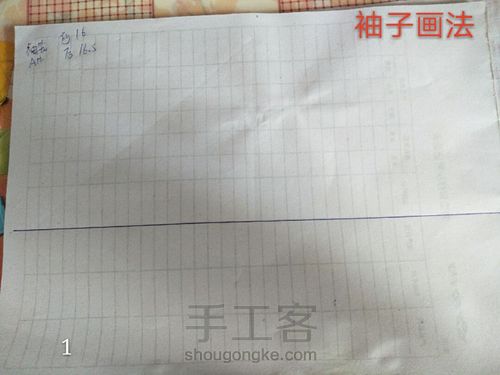 袖子画法
前 16
AH 后 16.5
1
手工客
shougongke.com